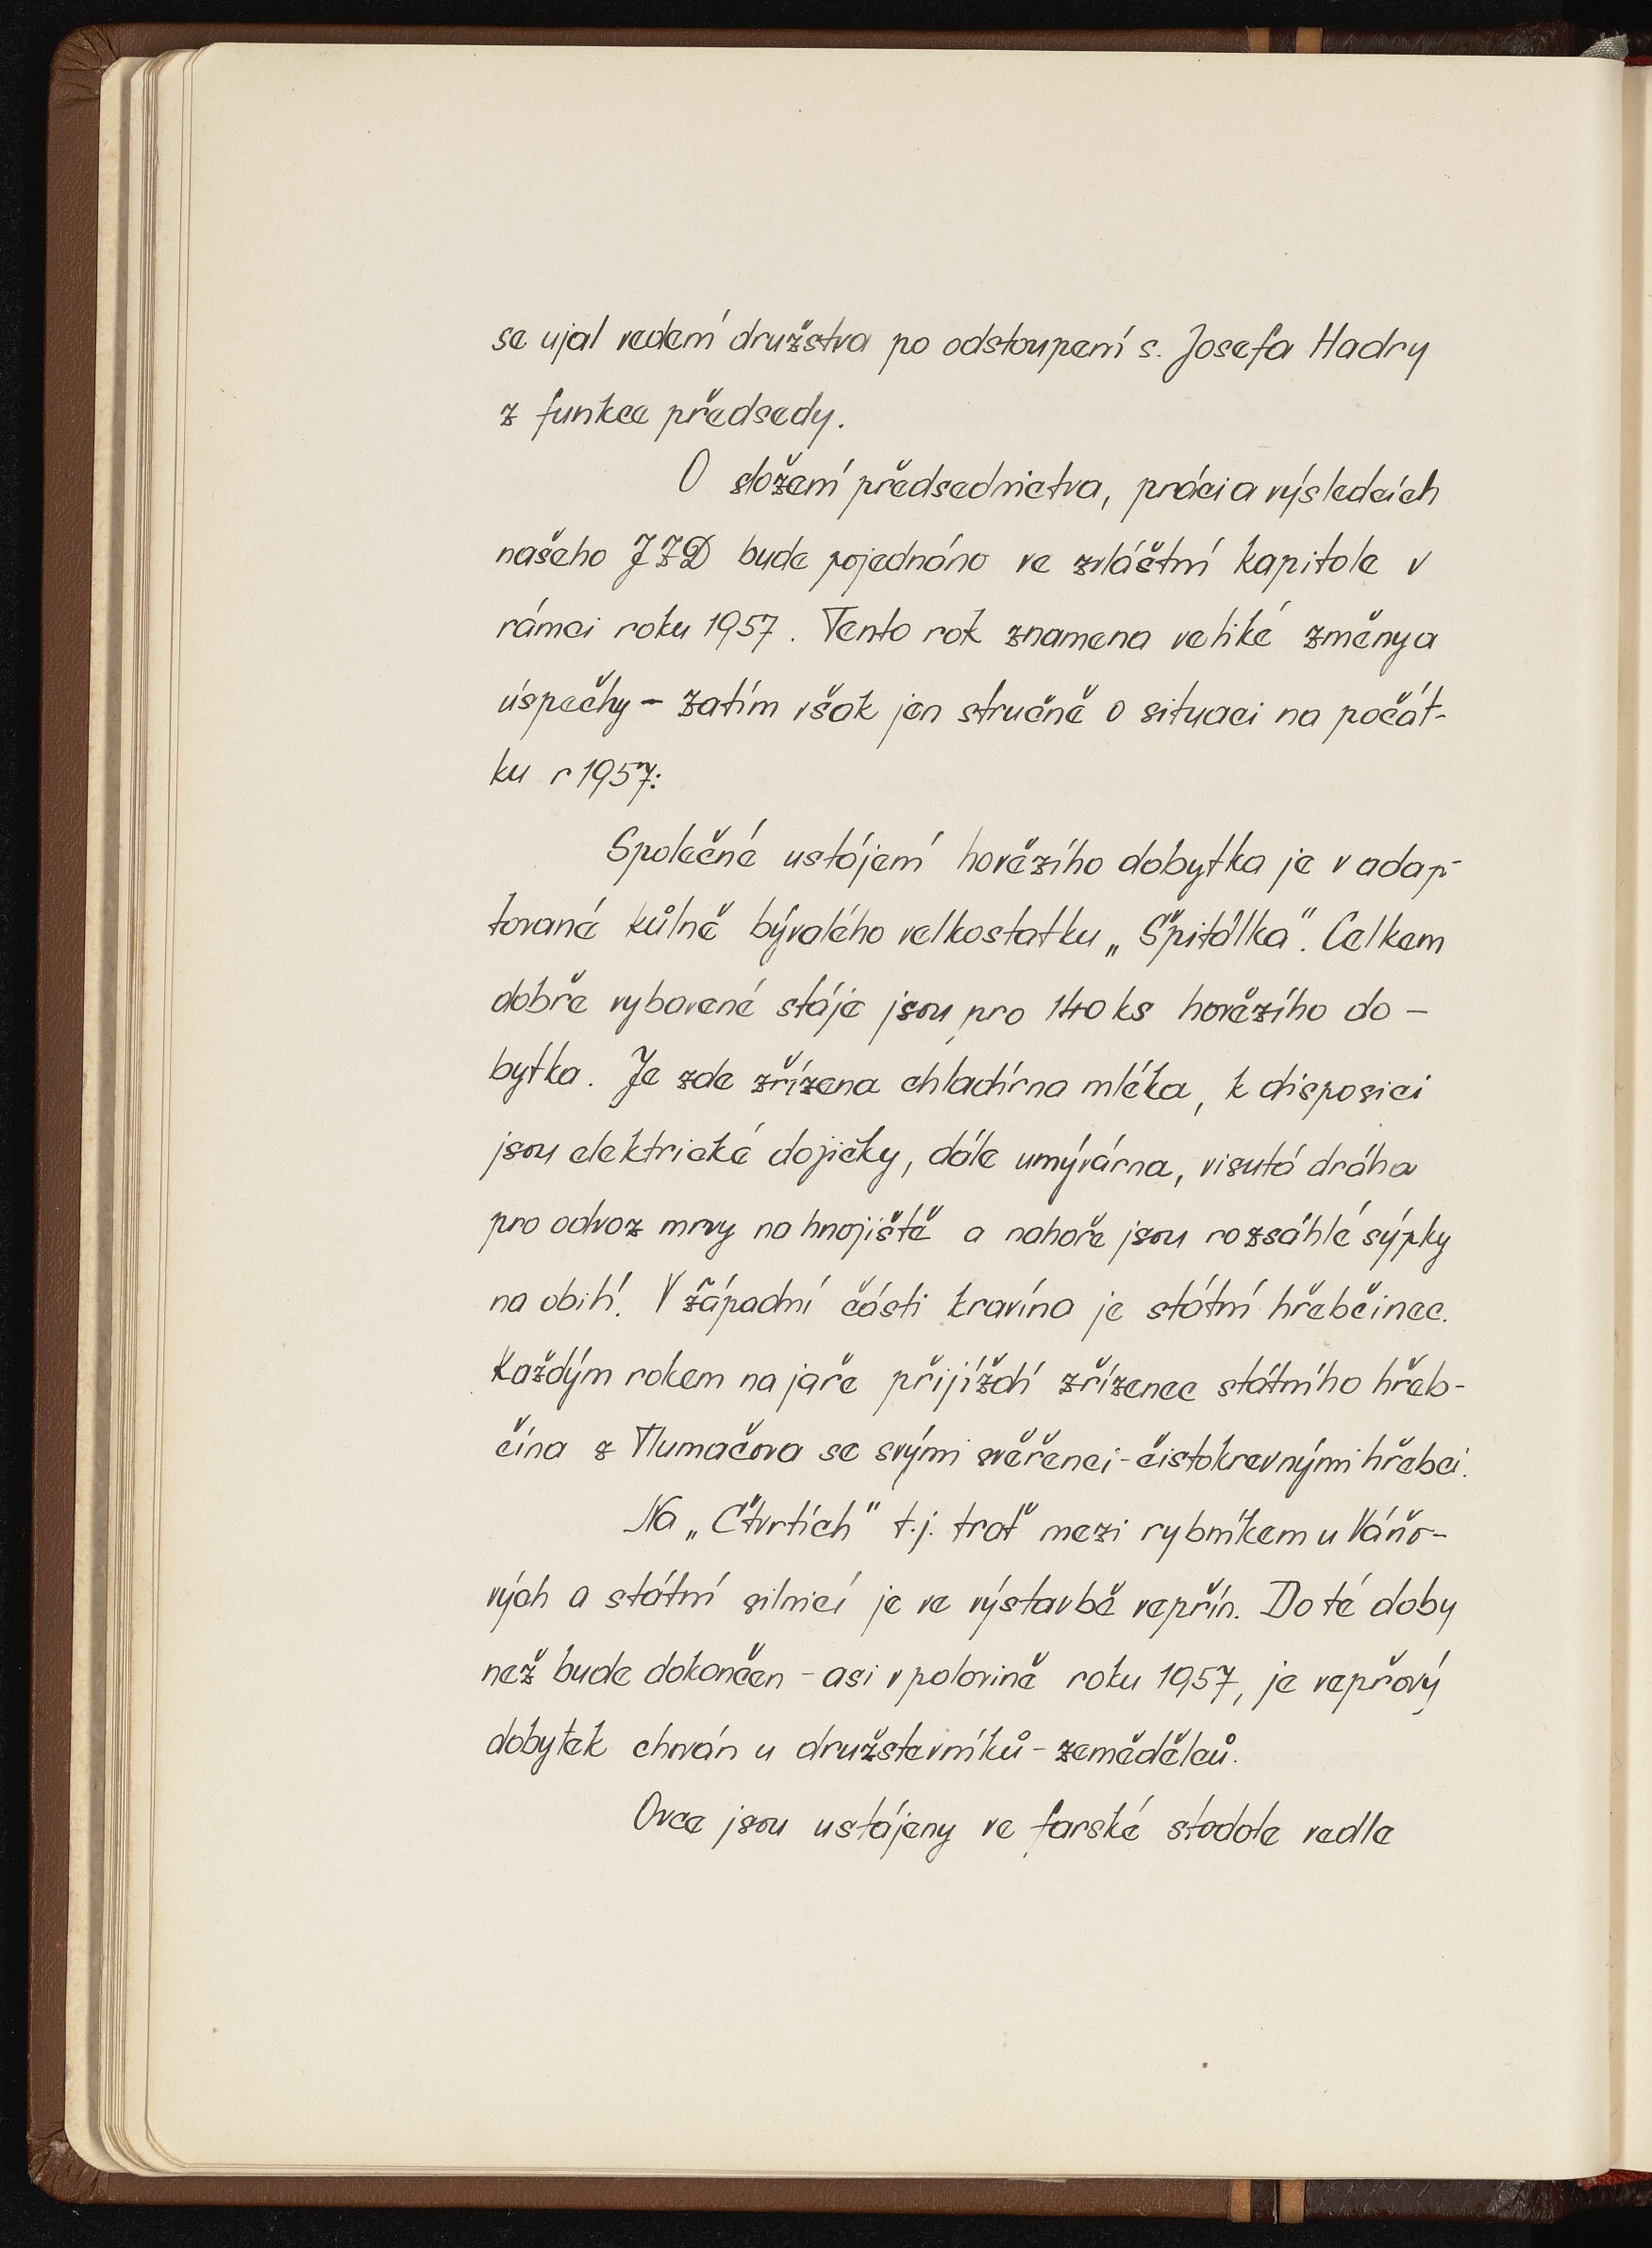 se ujal vedení družstva po odstoupení s. Josefa Hadry
z funkce předsedy.
O složení předsednictva, práci a výsledcích
našeho JZD bude pojednáno ve zvláštní kapitole v
rámci roku 1957. Tento rok znamena veliké změny a
úspěchy - zatím však jen stručně o situaci na počát-
ku r 1957:
Společné ustájení hovězího dobytka je v adap-
tované kůlně bývalého velkostatku „Špitálka". Celkem
dobře vybavené stáje jsou pro 140 ks hovězího do-
bytka. Je zde zřízena chladírna mléka, k disposici
jsou elektrické dojičky, dále umývárna, visutá dráha
pro odvoz mrvy na hnojiště a nahoře jsou rozsáhlé sýpky
na obilí. V západní části kravína je státní hřebčinec.
Každým rokem na jaře přijíždí zřízenec státního hřeb-
čína z Tlumačova se svými svěřenci - čistokrevnými hřebci.
Na „Čtvrtích" t.j. trať mezi rybníkem u Váňo-
vých a státní silnicí je ve výstavbě vepřín. Do té doby
než bude dokončen - asi v polovině roku 1957, je vepřový
dobytek chován u družstevníků - zemědělců.
Ovce jsou ustájeny ve farské stodole vedle